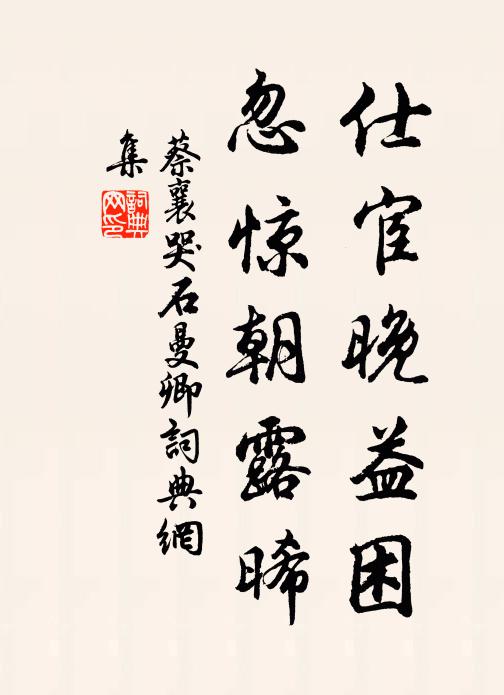 仕宦晚益困
忽惊朝露晞
蔡襄哭石曼卿詞典網
集
詞典
网印